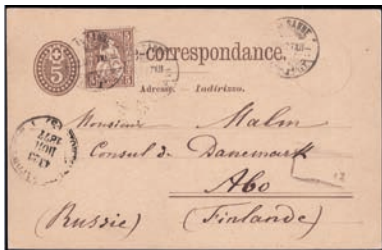 e-correspondance.
Adresse. — Indirizzo.
5
Monsieur Malm
Consul de Danemark
Abo
(Russie) (Finlande)